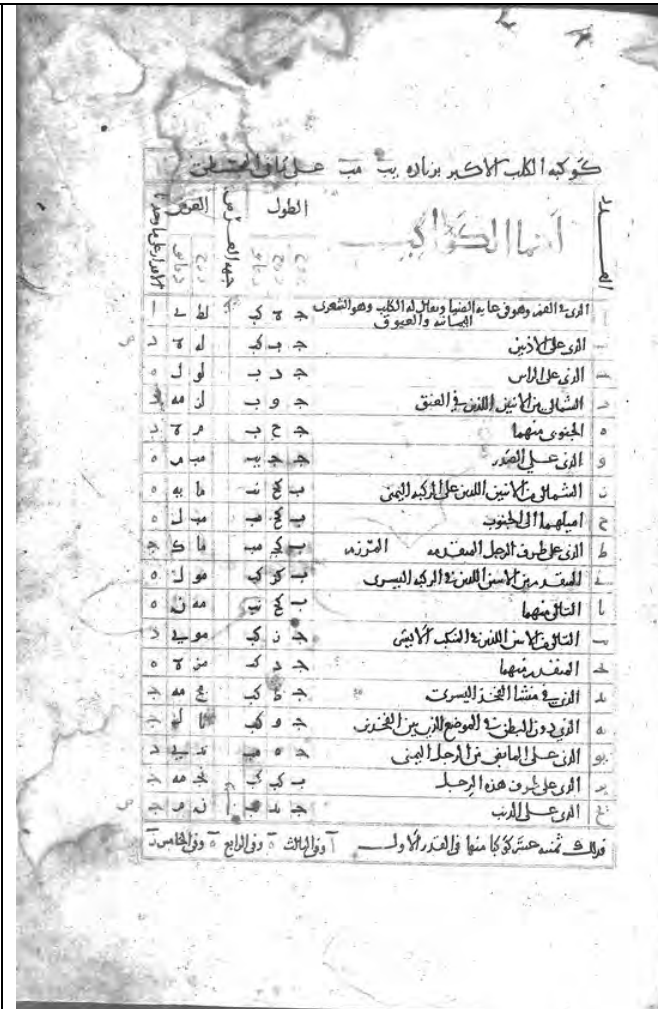 كوكبة الكلب الاكبر بزيادة يب مب على ما في المجسطي
العدد اسماء الكواكب الطول جهة العرض العرض
درج دقائق درج دقائق
ا الذي في الفم وهو في غاية الضيا ويقال له الكلب وهو الشعرى اليمانية والعبور ج ه كب لط ي ا
ب الذي على الاذنين ج له ه د
ج الذي على الراس ج د ب لو ل ه
د الشمالي من الاثنين اللذين في العنق ج و ب لز مه د
ه الجنوبي منهما ج ح ب م ه د
و الذي على الصدر ج ج مب م ه
ز الشمالي من الاثنين اللذين على الركبة اليمنى ب كح ما يه ه
ح اميلهما الى الجنوب ب كح مب ل ه
ط الذي على طرف الرجل المتقدمة المرزم ب كج مب ما ك ج
ي المتقدم من الاثنين اللذين في الركبة اليسرى ب كو كب مو ل ه
يا التالي منهما ب كح مه ن ه
يب التالي من الاثنين اللذين في المنكب الايسر ج ز كب مو ي د
يج المتقدم منهما ج د مز ه ه
يد الذي في منشا الفخذ اليسرى ج ط كب مح مه ج
يه الذي دون البطن في الموضع الذي بين الفخذين ج و كب نا ل ج
يو الذي على المابض من الرجل اليمنى ج ه مب نه ي د
يز الذي على طرف هذه الرجل ب كب كب نج مه ج
يح الذي على الذنب ج يد ب ن م ج
فذلك ثمنية عشر كوكبا منها في القدر الاول ا وفي الثالث ه وفي الرابع ه وفي الخامس ز